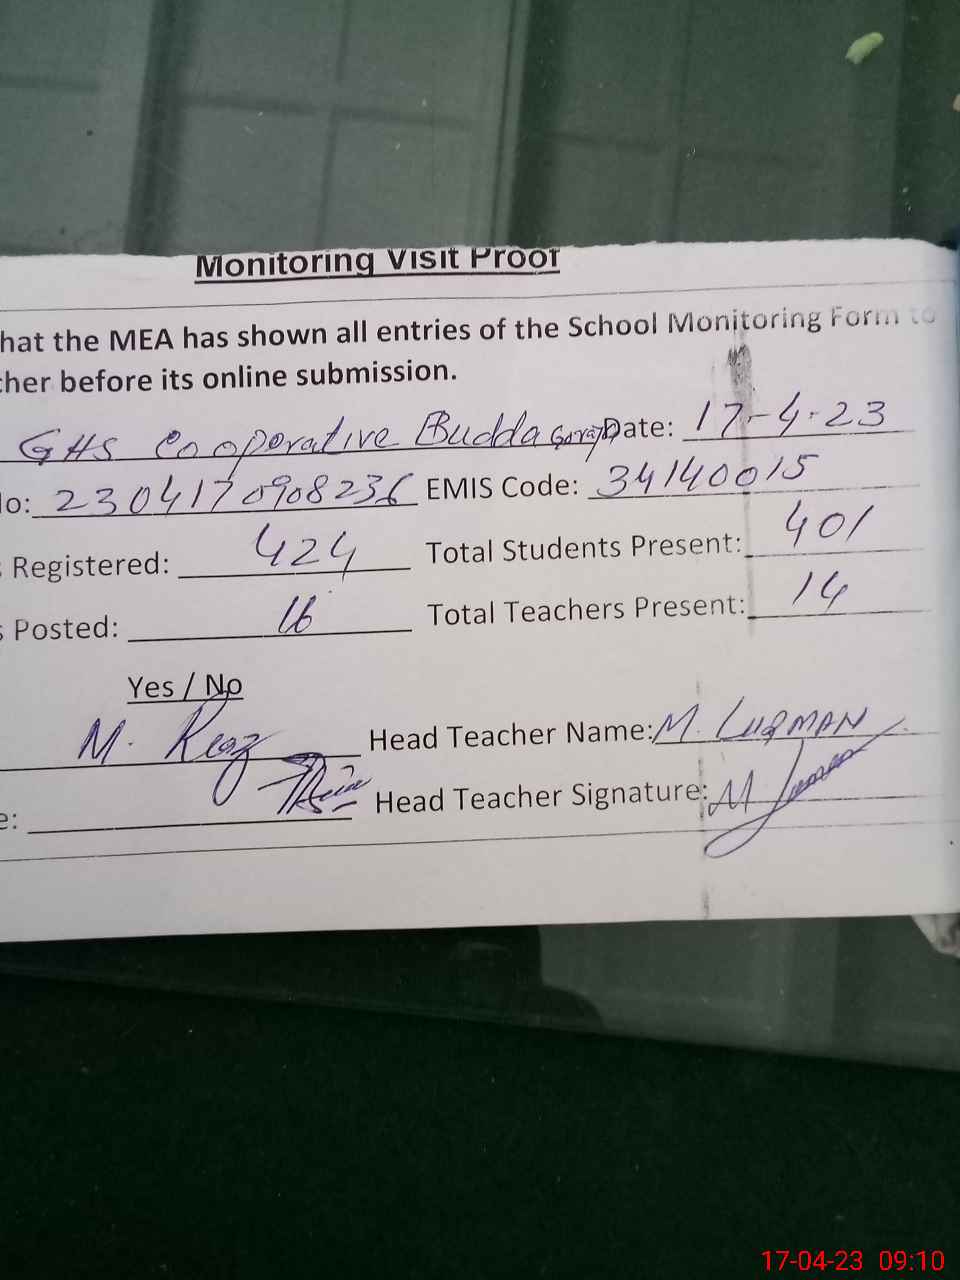 Monitoring Visit Proof
hat the MEA has shown all entries of the School Monitoring Form to
cher before its online submission.
GHS Cooperative Budda Goraya Date: 17-4-23
No: 2304170908236 EMIS Code: 34140015
s Registered: 424 Total Students Present: 401
s Posted: 16 Total Teachers Present: 14
Yes / No
M. Reaz Head Teacher Name: M. LUQMAN
e: Head Teacher Signature: M
17-04-23 09:10